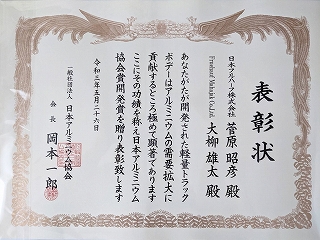 表彰状
日本フルハーフ株式会社
菅原昭彦殿
Fruehauf Mahajak Co.,Ltd.
大柳雄太殿
あなたがたが開発された軽量トラック
ボデーはアルミニウムの需要拡大に
貢献するところ極めて顕著であります
ここにその功績を称え日本アルミニウム
協会賞開発賞を贈り表彰致します
令和三年五月二十六日
一般社団法人 日本アルミニウム協会
会長 岡本一郎